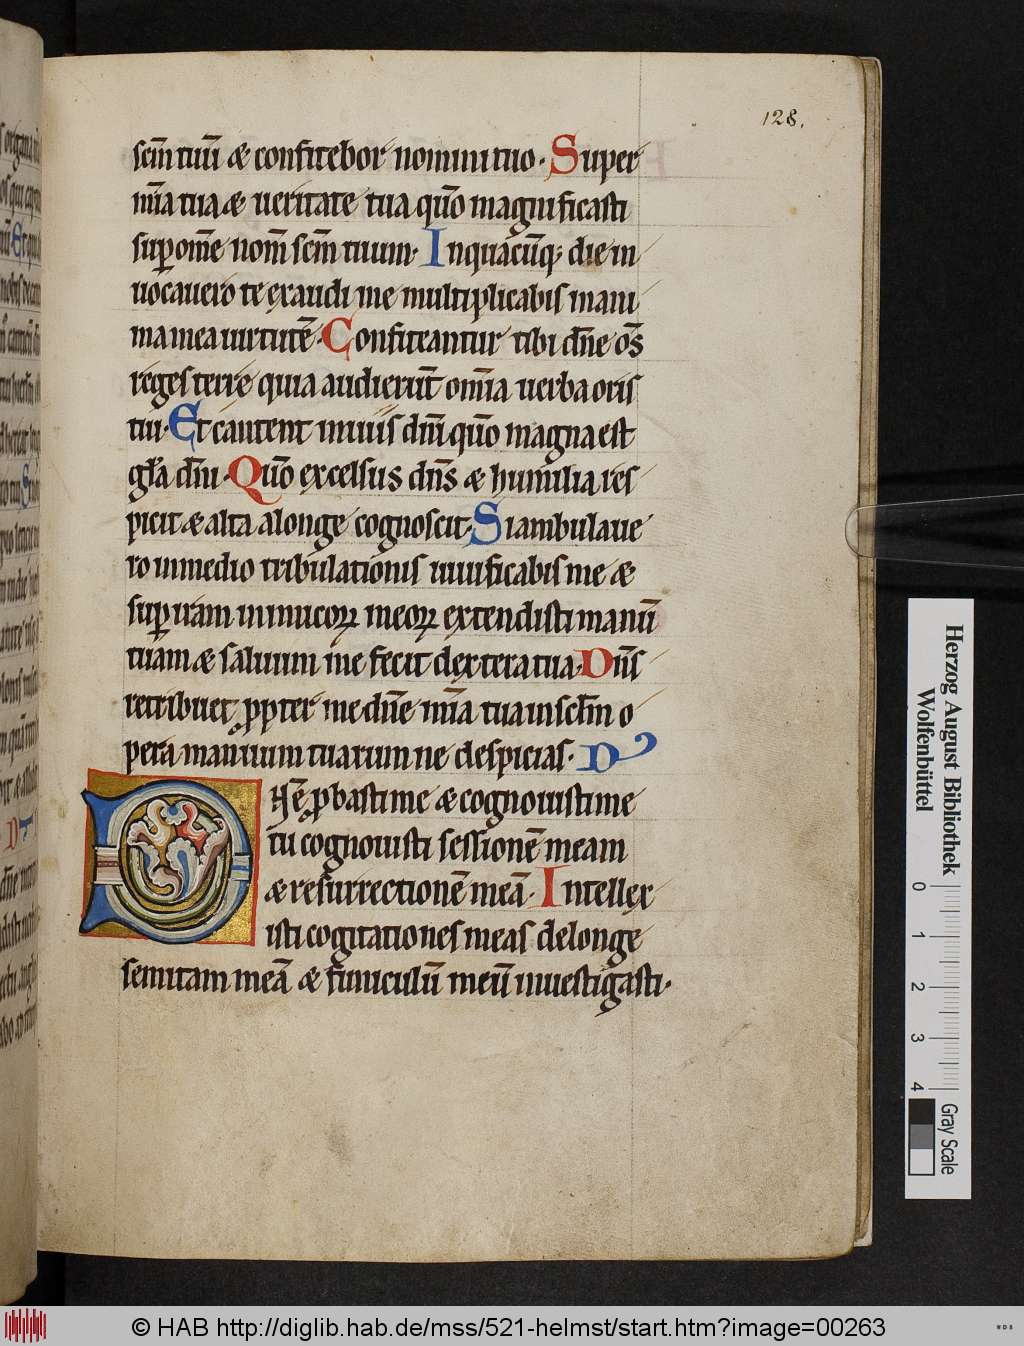 128.
scm̄ tuū & confitebor nomini tuo. Super
mīa tua & ueritate tua quō magnificasti
sup om̄e nom̄ scm̄ tuum. In quacūq; die in
uocauero te exaudi me multiplicabis in ani
ma mea uirtutē. Confiteantur tibi dn̄e om̄s
reges terre quia audierūt om̄ia uerba oris
tui. Et cantent in uiis dn̄i quō magna est
gl̄a dn̄i. Quō excelsus dn̄s & humilia res
picit & alta a longe cognoscit. Si ambulaue
ro in medio tribulationis uiuificabis me &
sup iram inimicoꝝ meoꝝ extendisti manū
tuam & saluum me fecit dextera tua. Dn̄s
retribuet ꝓpter me dn̄e mīa tua in sclm̄ o
pera manuum tuarum ne despicias. D
ne ꝓbasti me & cognouisti me
tu cognouisti sessionē meam
& resurrectionē meā. Intellex
isti cogitationes meas de longe
semitam meā & funiculū meū inuestigasti.
Herzog August Bibliothek
Wolfenbüttel
0 1 2 3 4
Gray Scale
© HAB http://diglib.hab.de/mss/521-helmst/start.htm?image=00263